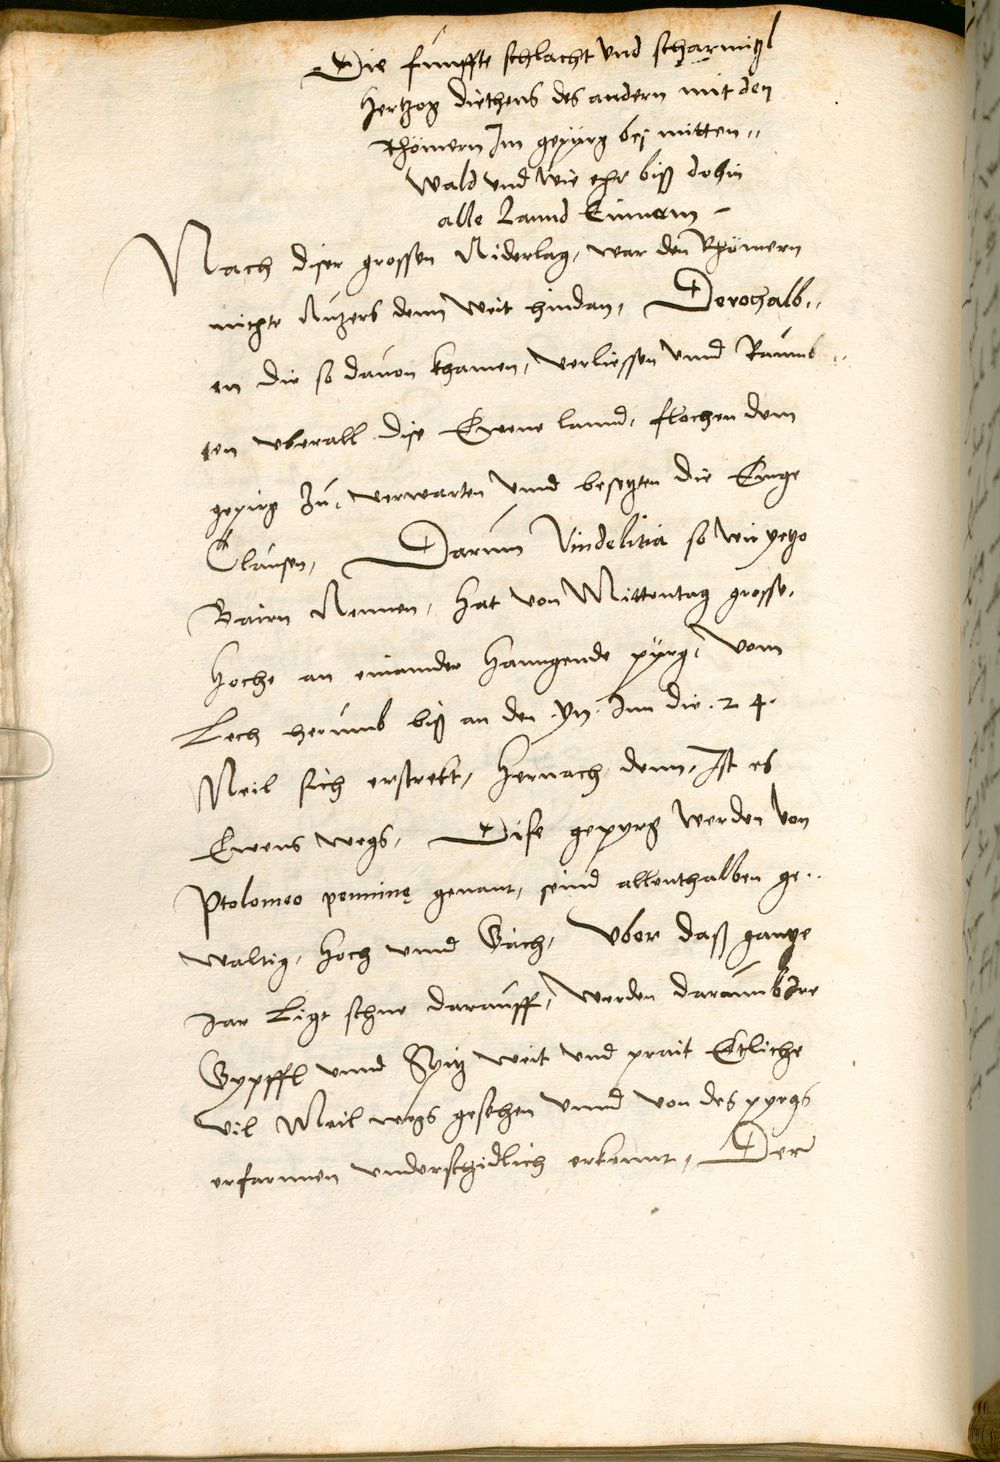 Die funffte schlacht und scharmitzl
Hertzog diethens des andern mit den
Rhömern Im gepürg bej mitten„
Wald und wie ehr biß dohin
alle Lannd Einnam –
Nach diser grossen Niderlag, war den Rhömern
nichts Nutzers denn weit hindan, Derohalb„
en die so dauon khamen, verliessen unnd Raumb„
ten uberall dise Ebene lannd, flochen dem
gepirg Zu, verwarten unnd besetzten die Enge
Clausen, Darum Vindelitia so wir yetzo
Bairn Nennen, hat von Mittentag grosse,
hoche an einander hanngende pyrg, vom
Lech herumb biß an den .Yn. Inn die .24.
Meil sich erstrekt, hernach denn, Ist es
Ebens wegs, Dise gepyrg werden von
Ptolomeo penninę genant, seind allenthalben ge„
waltig, hoch unnd Gäch, Uber daß gantze
Jar Ligt schne darauff, werden daraumb Ire
Gypffl unnd Spitz weit und prait Etliche
vil Meil wegs gesehen unnd von des pyrgs
erfarnnen underschidlich erkennt, Der